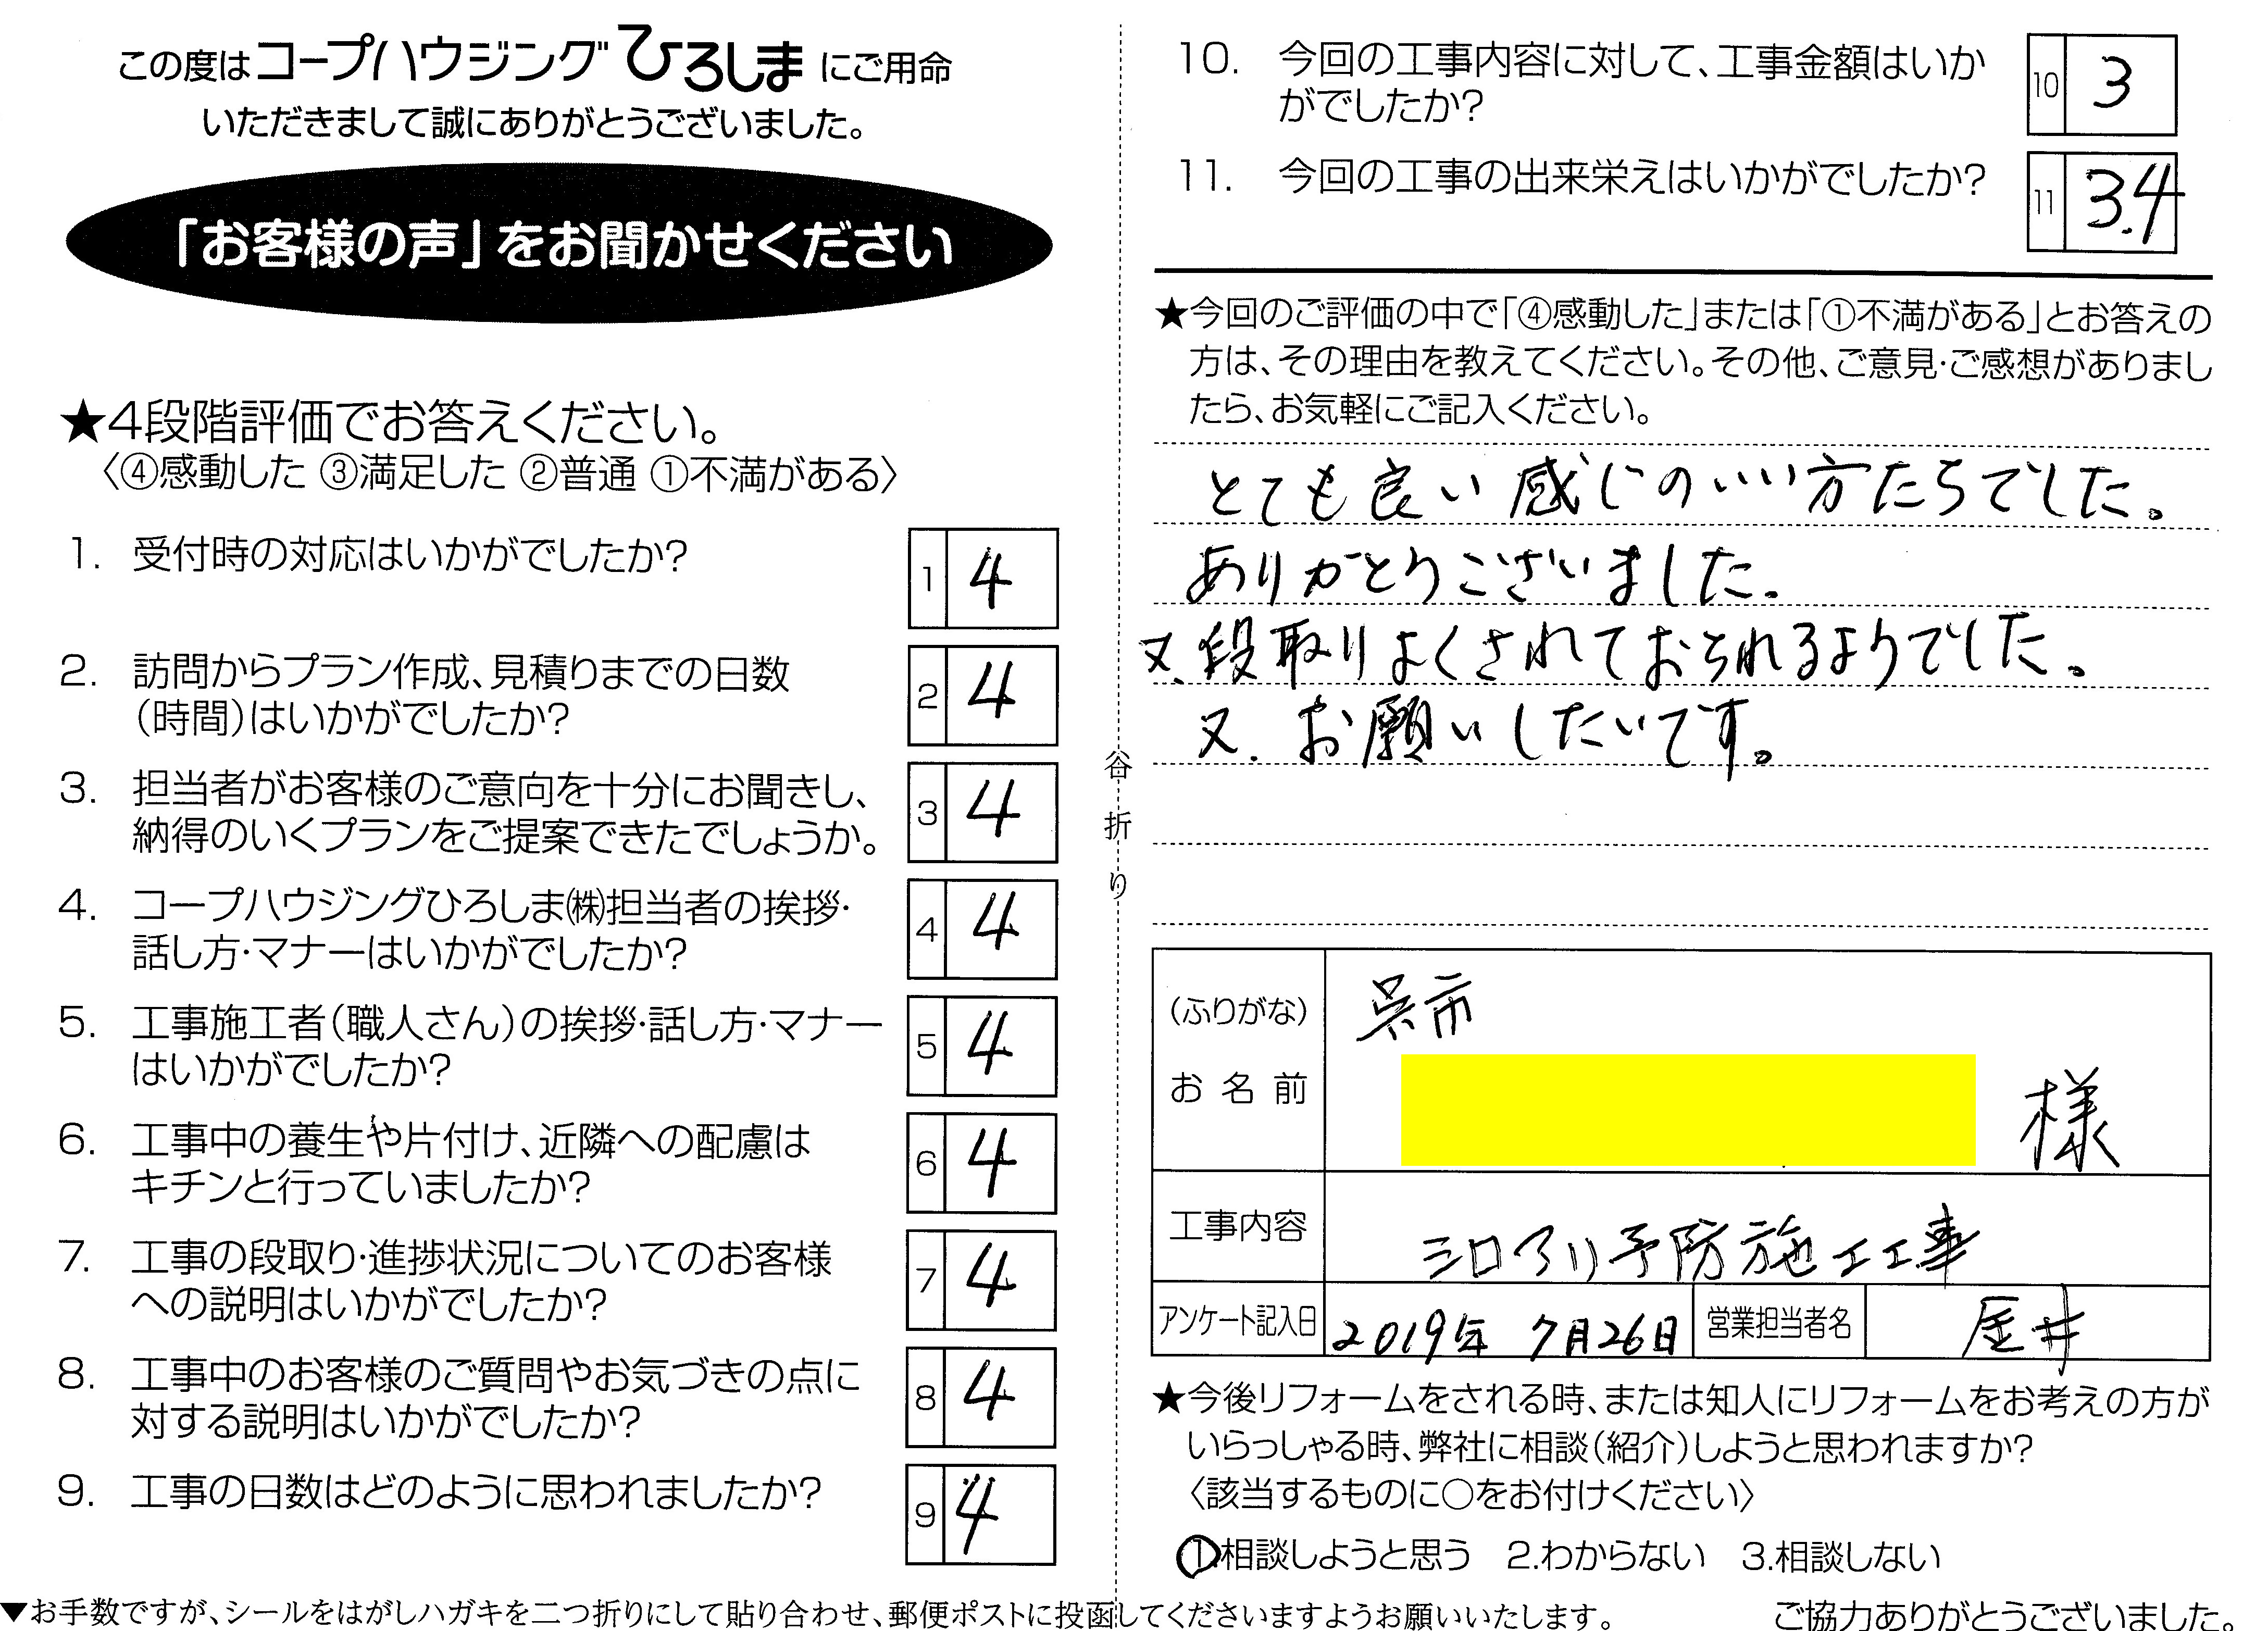 この度はコープハウジングひろしまにご用命
いただきまして誠にありがとうございました。
「お客様の声」をお聞かせください
★4段階評価でお答えください。
〈④感動した ③満足した ②普通 ①不満がある〉
1. 受付時の対応はいかがでしたか?
1 4
2. 訪問からプラン作成、見積りまでの日数
(時間)はいかがでしたか?
2 4
3. 担当者がお客様のご意向を十分にお聞きし、
納得のいくプランをご提案できたでしょうか。
3 4
4. コープハウジングひろしま㈱担当者の挨拶・
話し方・マナーはいかがでしたか?
4 4
5. 工事施工者(職人さん)の挨拶・話し方・マナー
はいかがでしたか?
5 4
6. 工事中の養生や片付け、近隣への配慮は
キチンと行っていましたか?
6 4
7. 工事の段取り・進捗状況についてのお客様
への説明はいかがでしたか?
7 4
8. 工事中のお客様のご質問やお気づきの点に
対する説明はいかがでしたか?
8 4
9. 工事の日数はどのように思われましたか?
9 4
谷折り
10. 今回の工事内容に対して、工事金額はいか
がでしたか?
10 3
11. 今回の工事の出来栄えはいかがでしたか?
11 3.4
★今回のご評価の中で「④感動した」または「①不満がある」とお答えの
方は、その理由を教えてください。その他、ご意見・ご感想がありまし
たら、お気軽にご記入ください。
とても良い感じのいい方たちでした。
ありがとうございました。
又、段取りよくされておられるようでした。
又、お願いしたいです。
(ふりがな)
お名前
呉市
様
工事内容 シロアリ予防施工工事
アンケート記入日 2019年 7月26日 営業担当者名
★今後リフォームをされる時、または知人にリフォームをお考えの方が
いらっしゃる時、弊社に相談(紹介)しようと思われますか?
〈該当するものに○をお付けください〉
1.相談しようと思う 2.わからない 3.相談しない
▼お手数ですが、シールをはがしハガキを二つ折りにして貼り合わせ、郵便ポストに投函してくださいますようお願いいたします。
ご協力ありがとうございました。